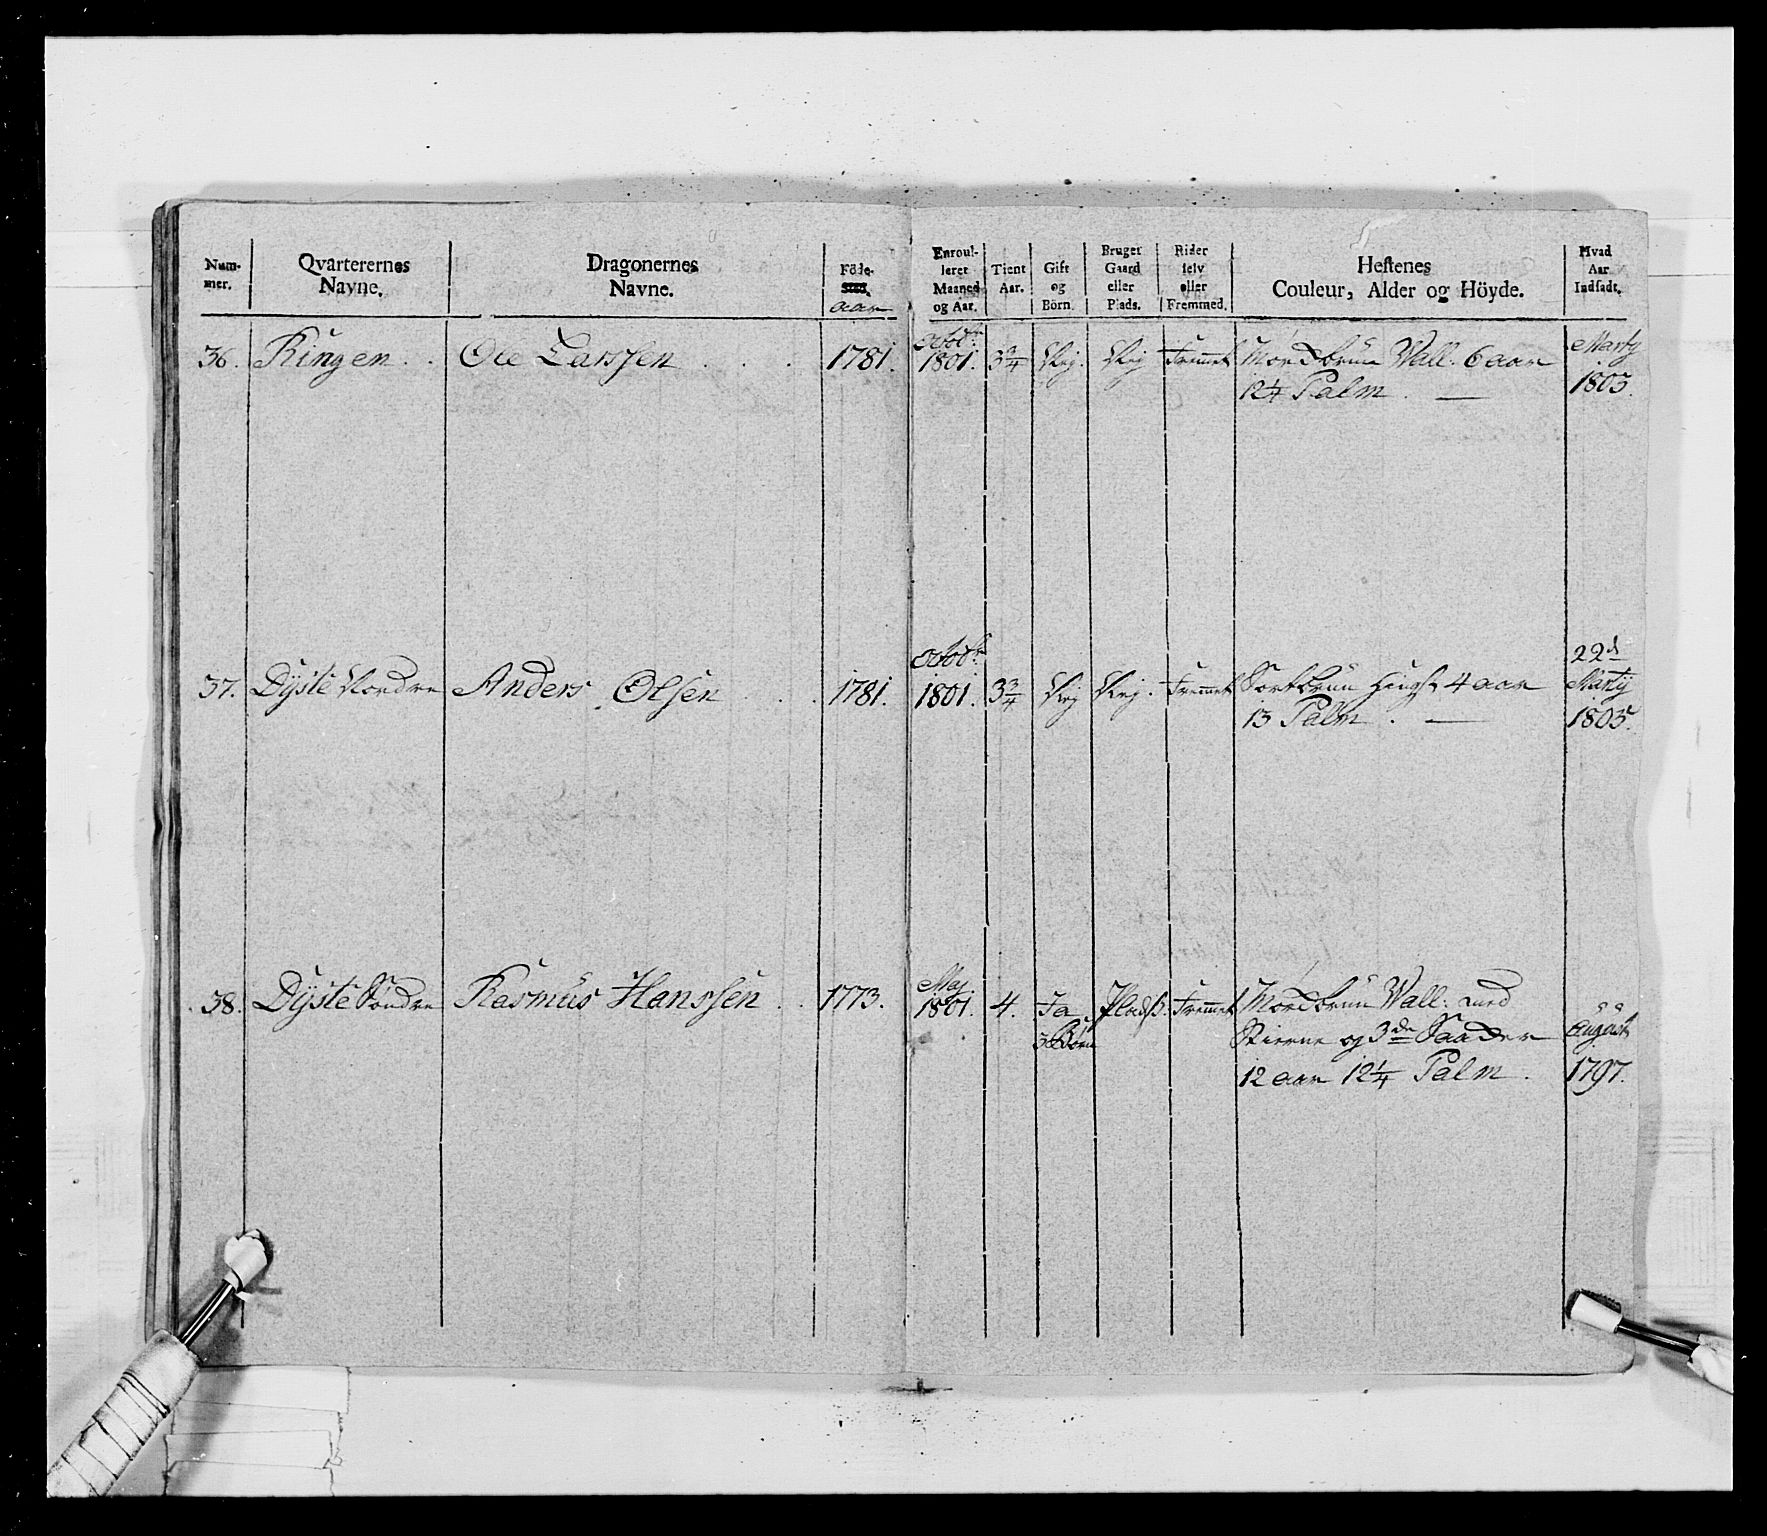 Num-
mer.
Qvarterernes
Navne.
Dragonernes
Navne.
Föde-
aar
Enroul-
leret
Maaned
og Aar.
Tient
Aar.
Gift
og
Börn.
Bruget
Gaard
eller
Plads.
Rider
selv
eller
Fremmed.
Hestenes
Couleur, Alder og Höyde.
Hvad
Aar
Indsadt.
36. Ringen Ole Larssen 1781. Octobr 1801. 3¾ Nej. Nej Fremmet Mordbrun Wall. 6 aar Marty
12¼ Palm. 1803.
37. Dyste Nordre Anders Olsen 1781. Octobr 1801. 3¾ Nej Nej. Fremmet Sortbrun Hingst 4 aar 22d Martij
13 Palm. 1805.
38. Dyste Söndre Rasmus Hanssen 1773. May 1801. 4. Ja Pladß. Fremmet Mordbrun Wall. med
3 Börn Stierne og 3de Saader August
12 aar 12¼ Palm. 1797.